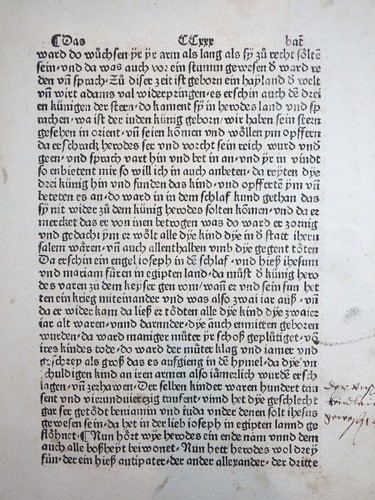 ¶ Das CCxxx bat̄
ward do wůchsen ÿr ÿr arm als lang als sÿ zů recht soltē
sein · vnd da was auch vor ein stumm gewesen đ ward re
den vn̄ sprach · Zů diser zeit ist geborn ein hayland đ welt
vn̄ wirt adams val widerpringen · es erschin auch dē drei
en künigen der stern · do kament sÿ in herodes land vnd sp
rachen · wa ist der iuden künig geborn · wir haben sein stern
gesehen in orient · vn̄ seien kōmen vnd wöllen ÿm opffern
da erschrack herodes ser vnd vorcht sein reich wurd vnd
geen · vnd sprach vart hin vnd bet in an · vnd ÿr in vindt
so enbietent mir so will ich in auch anbeten · da reyten dÿe
drei künig hin vnd funden das kind · vnd opffertē ÿm vn̄
beteten es an · do ward in in dem schlaf kund gethan das
sÿ nit wider zů dem künig herodes solten kōmen · vnd da er
mercket das er von inen betrogen was do ward er zornig
vnd gedacht ÿm er wölt alle dÿe kind dÿe in đ statt iheru
salem wären · vn̄ auch allenthalben vmb dÿe gegent töten
Da erschin ein engel ioseph in dē schlaf · vnd hieß ihesum
vnd mariam füren in egipten land · da můst đ künig hero
des varen zu dem keyser gen rom · wan̄ er vnd sein sun het
ten ein krieg miteinander vnd was also zwei iar auß · vn̄
da er wider kam da ließ er tödten alle dÿe kind dÿe zwaier
iar alt waren · vnnd darunder · dÿe auch enmitten geboren
wurden · da ward maniger můter ÿr schoß geplütiget · vō
ires kindes tode · do ward der můter klag vnd iamer vnd
geschrey als groß das es aufgieng in dē hymel · da dÿe vn
schuldigen kind an iren armen also iämerlich wurdē ersch
lagen · vn̄ zerhawen · Der selben kinder waren hundert tau
sent vnd vierundvierczig tausent · vnnd dÿe geschlecht
gar ser getödt beniamin vnd iuda vnder denen solt ihesus
gewesen sein · da het in der lieb ioseph in egipten lannd ge
flöhnet · ¶ Nun hört wÿe herodes ein ende nam vnnd dem
auch alle boßheyt beiwonet · Nun hett herodes wol drey
sün · der ein hieß antipater · der ander allexander · der dritte